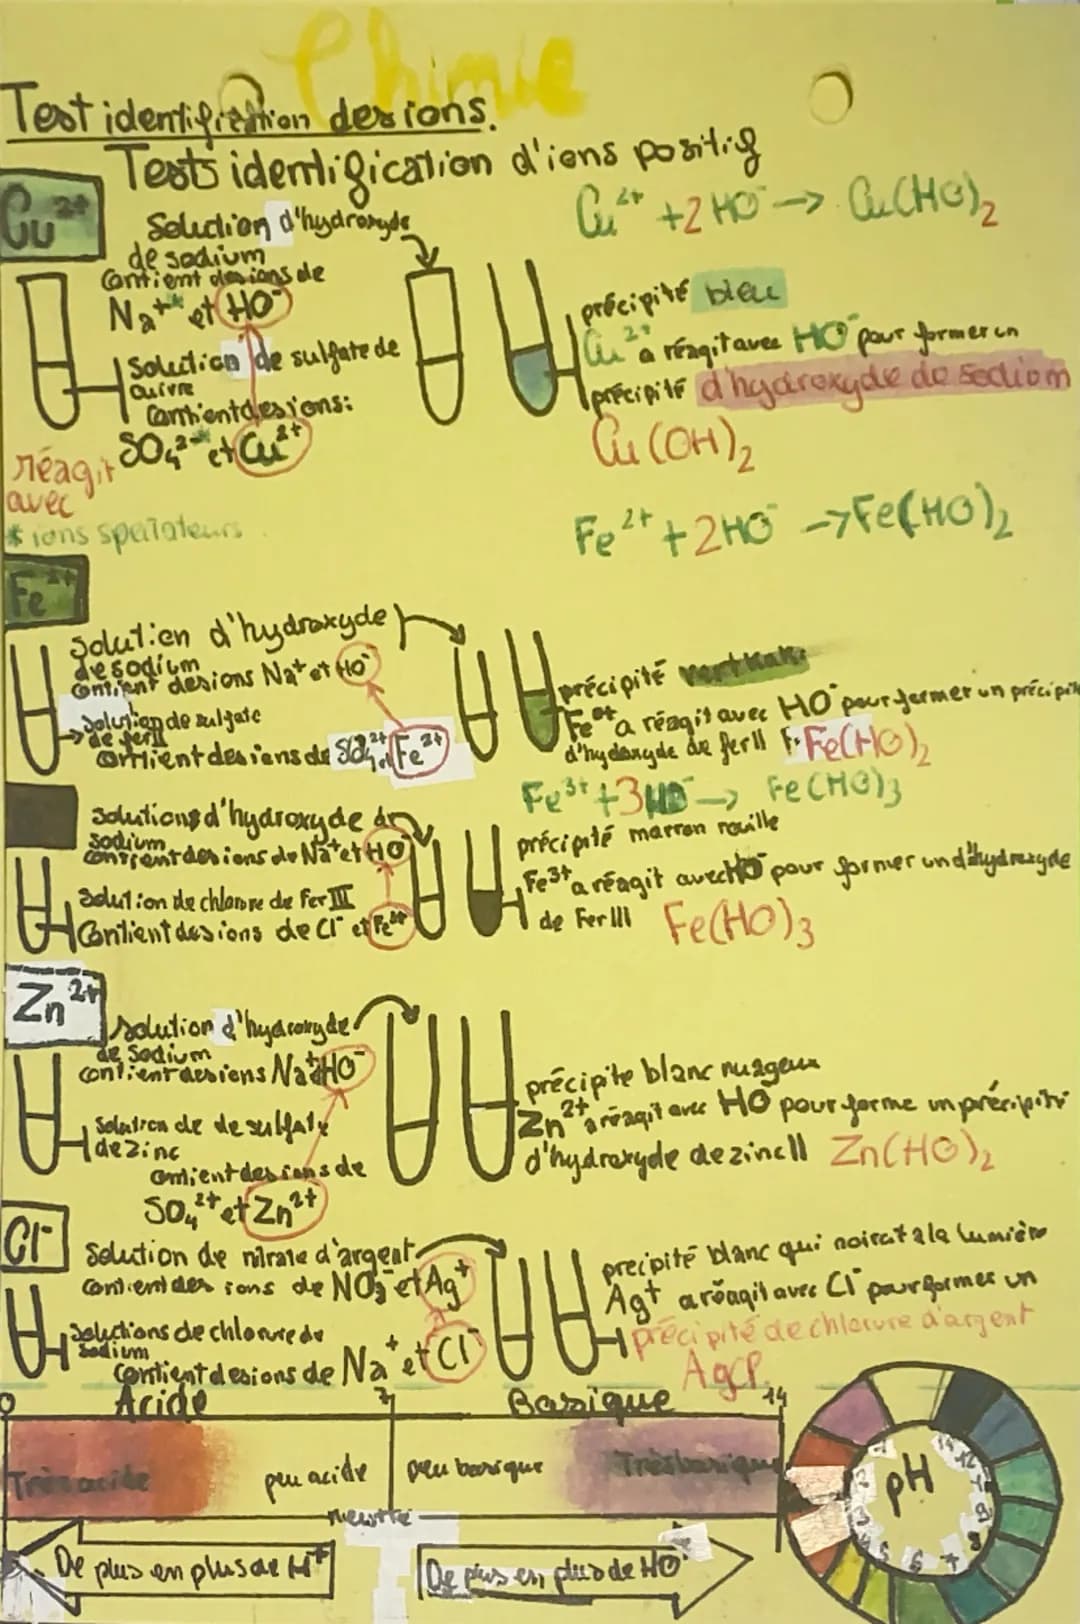 Chimie
Test identification des ions.
Tests identification d'ions positif
Cu²⁺
Solution d'hydroxyde
de sodium
Contient des ions de
Na⁺* et HO⁻
Solution de sulfate de
cuivre
Contient des ions:
SO₄²⁻* et Cu²⁺
réagit
avec
* ions spectateurs
Cu²⁺ + 2 HO⁻ → Cu(HO)₂
précipité bleu
Cu²⁺ a réagit avec HO⁻ pour former un
précipité d'hydroxyde de sodium
Cu(OH)₂
Fe²⁺ + 2HO⁻ → Fe(HO)₂
Fe²⁺
Solution d'hydroxyde
de sodium
contient des ions Na⁺ et HO⁻
Solution de sulfate
de fer II
contient des ions de
Fe²⁺
précipité vert kaki
a réagit avec HO⁻ pour former un précipité
d'hydoxyde de fer II Fe(HO)₂
Fe³⁺ + 3 HO⁻ → Fe(HO)₃
Solutions d'hydroxyde de
sodium
contient des ions de Na⁺ et HO⁻
Solution de chlorure de Fer III
Contient des ions de Cl⁻ et
précipité marron rouille
Fe³⁺ a réagit avec HO⁻ pour former un d'hydroxyde
de Fer III Fe(HO)₃
Zn²⁺
solution d'hydroxyde
de Sodium
contient des ions Na⁺ et HO⁻
Solution de de sulfate
de zinc
contient des ions de
SO₄²⁺ et Zn²⁺
précipite blanc nuageux
Zn²⁺ a réagit avec HO⁻ pour forme un précipité
d'hydroxyde de zinc II Zn(HO)₂
Cl⁻
Solution de nitrate d'argent
contient des ions de NO₃⁻ et Ag⁺
Solutions de chlorure de
Sodium
Contient des ions de Na⁺ et Cl⁻
precipité blanc qui noircit a la lumière
Ag⁺ a réagit avec Cl⁻ pour former un
précipité de chlorure d'argent
AgCl
Acide Basique
0 7 14
Très acide peu acide peu basique Très basique
neutre
De plus en plus de H⁺ De plus en plus de HO⁻
pH